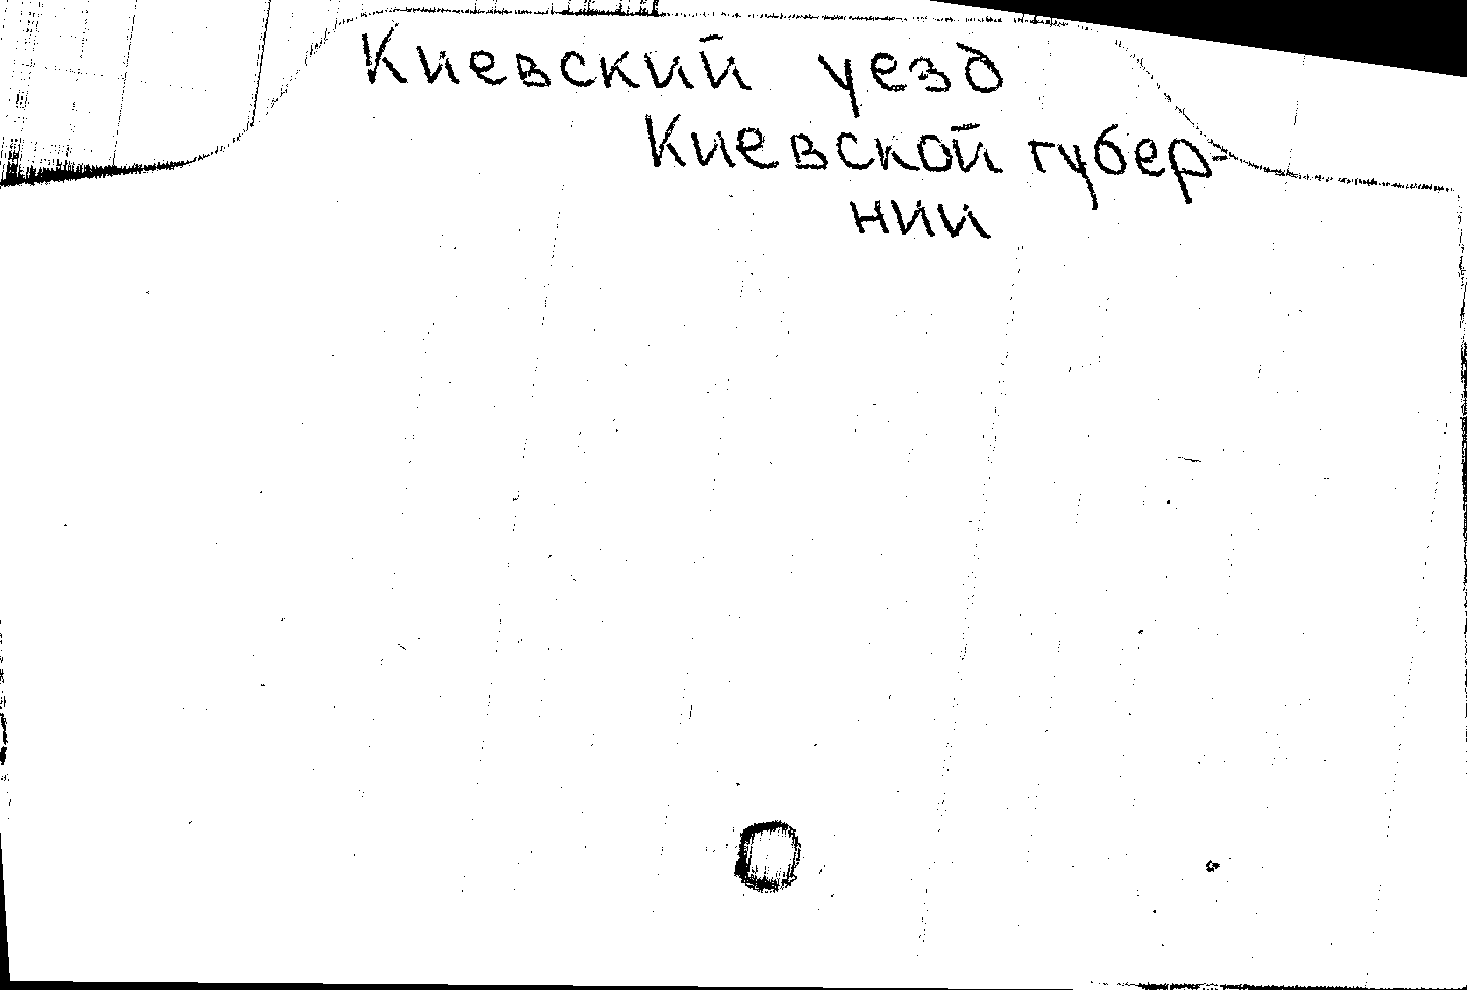 Киевский уезд
Киевской губер-
нии